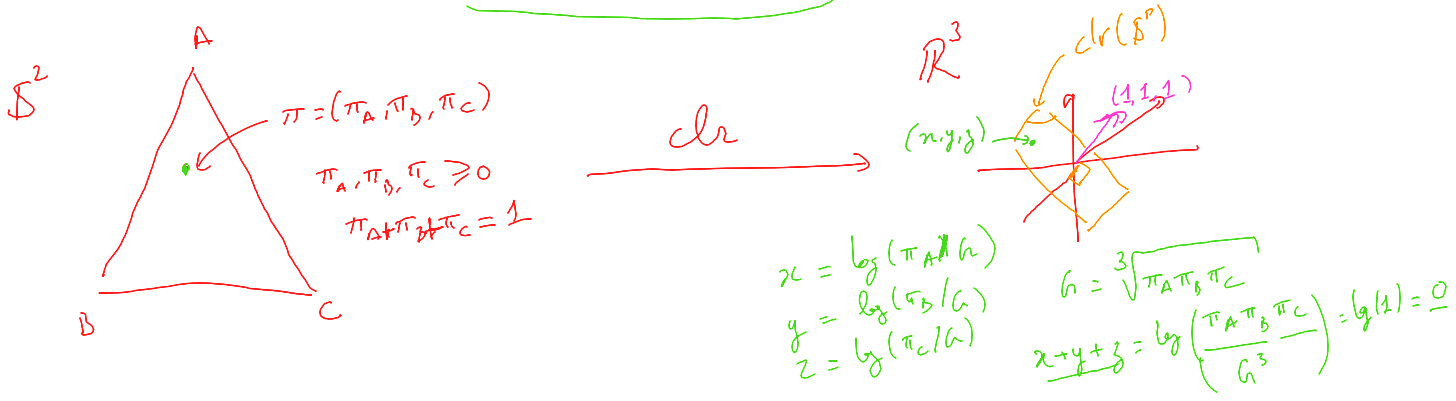 𝕊²
A
B
C
π = (π_A, π_B, π_C)
π_A, π_B, π_C ⩾ 0
π_A + π_B + π_C = 1
clr
ℝ³
clr(𝕊ᴰ)
(1,1,1)
(x,y,z)
x = log(π_A/G)
y = log(π_B/G)
z = log(π_C/G)
G = ∛(π_A π_B π_C)
x+y+z = log(π_A π_B π_C / G³) = lg(1) = 0